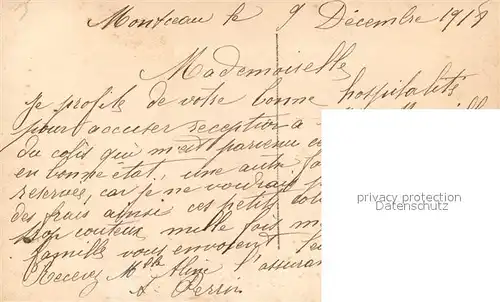 Montceau le 9 Décembre 1918
Mademoiselle
Je profite de votre bonne hospitalité
pour accuser reception à
du colis qui m'est parvenu
en bonne état, une autre
reserves, car je ne voudrais
des frais ainsi ces petits
trop couteux mille fois
famille vous envoyent
Recevez Mlle Aline l'assuran
A Perrin
privacy protection
Datenschutz